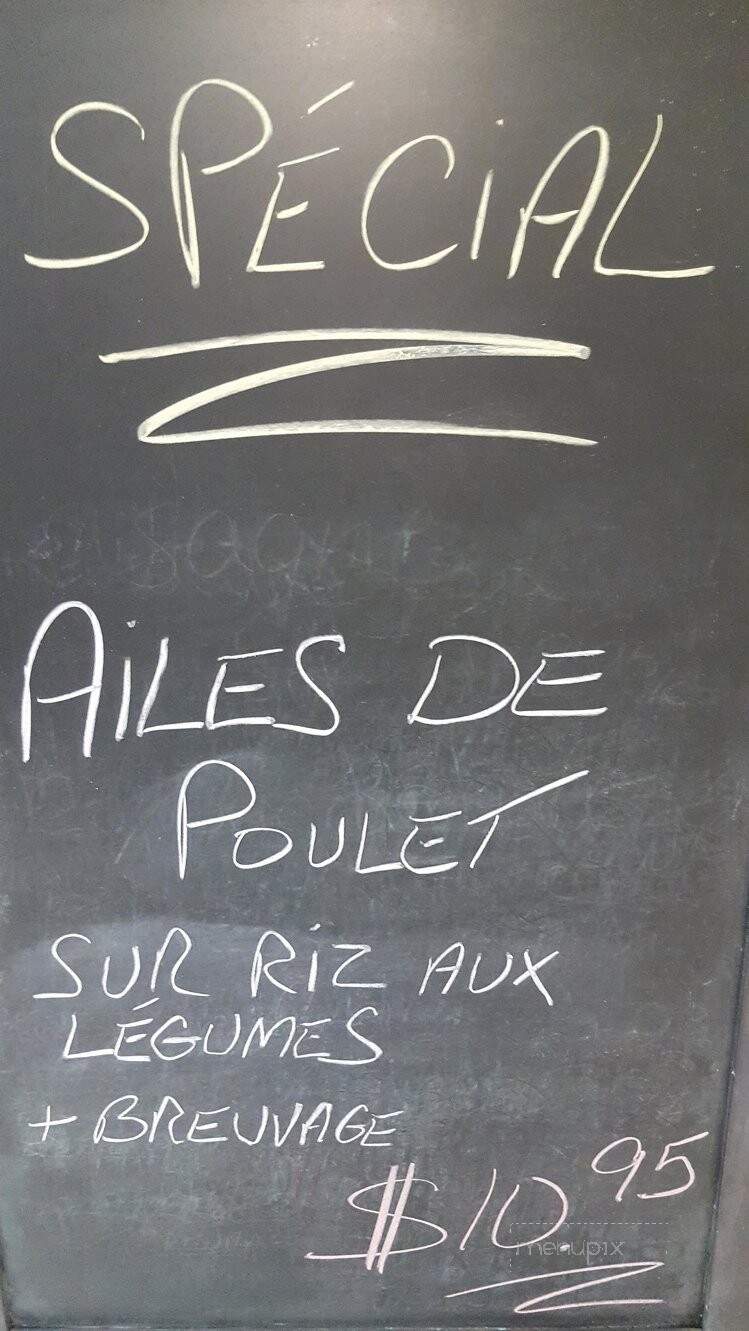 SPÉCIAL
AILES DE
POULET
SUR RIZ AUX
LÉGUMES
+ BREUVAGE
$10.95
menupix